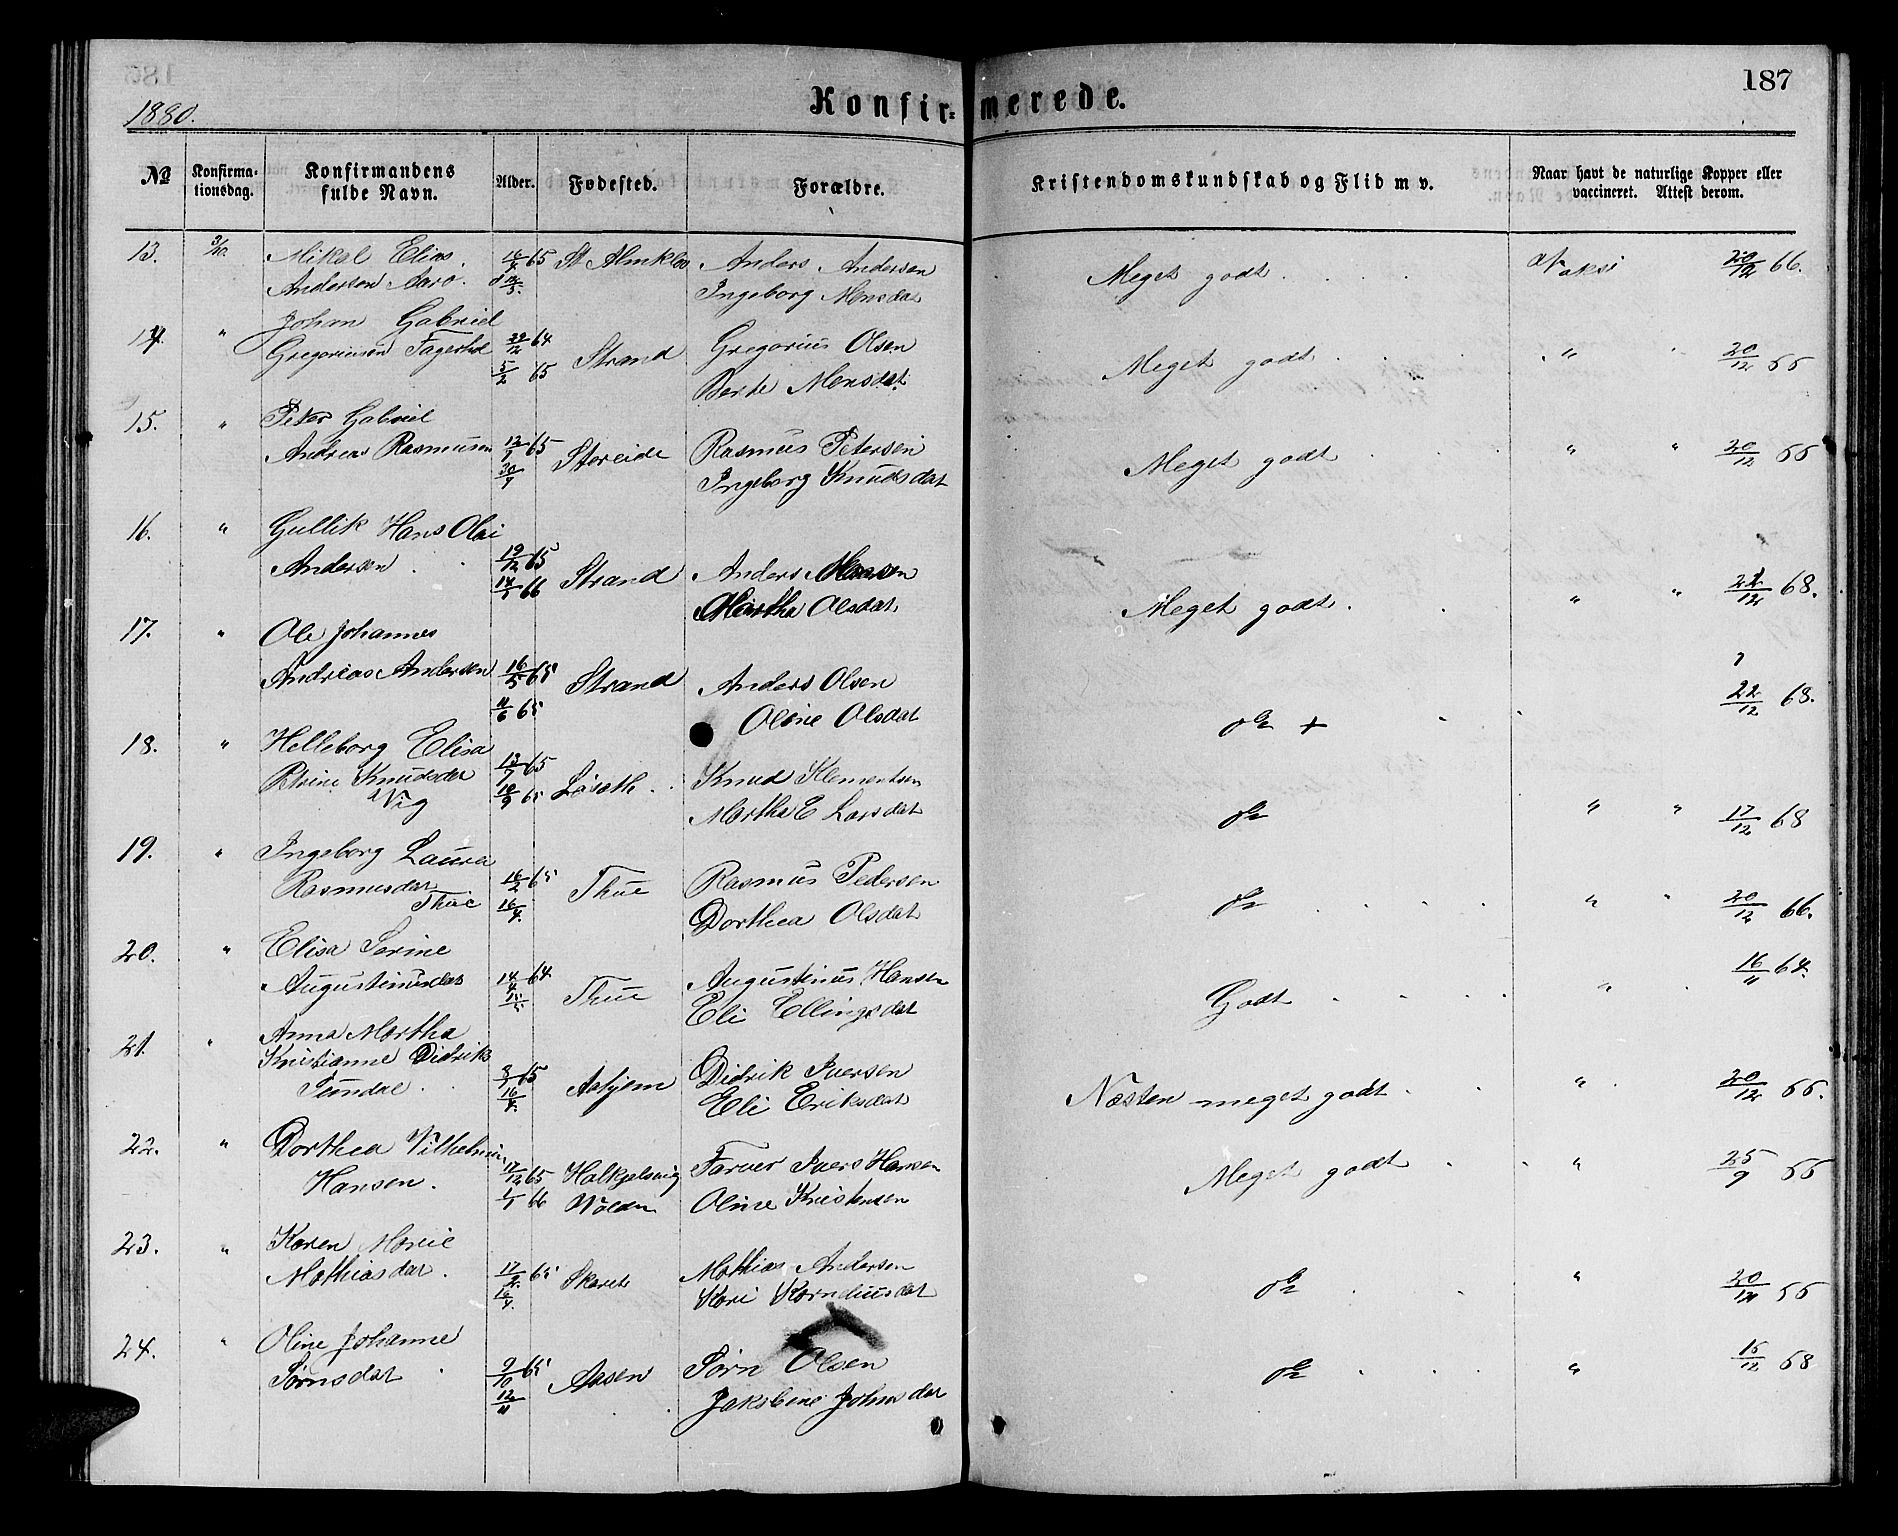 187
1880.
Konfir= merede.
No
Konfirma-
tionsdag.
Konfirmandens
fulde Navn.
Alder.
Fødested.
Forældre.
Kristendomskundskab og Flid m v.
Naar havt de naturlige Kopper eller
vaccineret. Attest derom.
13. 3/10. Mikal Elias 65 St Almklov Anders Andersen Meget godt 20/12 66.
Andersen Ingeborg Monsdat
Johan Gabriel
14. " Gregoriusen 64 Strand Gregorius Olsen Meget godt " 20/12 66
5/2 65 Berte Monsdat
15. " Peter Gabriel
Andreas Rasmusen 12/7 65 Storeide Rasmus Petersen Meget godt " " 20/12 66
30/7 Ingeborg Knudsdat
16. " Gullik Hans Olai
Andersen 19/12 65 Strand Anders Monsen
14/1 66 Martha Olsdat Meget godt. " " 22/12 68.
17. " Ole Johannes
Andreas Andersen 16/5 65 Strand Anders Olsen 22/12 68.
11/6 65 Oline Olsdat do +
18. " Helleborg Elisa
Petrine Knudsdat 13/7 65 Løseth Knud Klementsen
Vig 10/9 65 Martha E Larsdat do " " 17/12 68
19. " Ingeborg Laura
Rasmusdat 16/2 65 Thue Rasmus Pedersen do " " 20/12 66.
Thue 16/4. Dorthea Olsdat
20. " Elisa Serine 16/11 64.
Augustinusdat 14/4 64 Thue Augustinus Hansen Godt "
Eli Ellingsdat
21. " Anna Martha
Kristianne Didriks 8/1 65 Aasjem Didrik Iversen Næsten meget godt " 20/12 66.
16/4. Eli Eriksdat
22. " Dorthea Vilhelmin
Hansen. 17/12 65 Halkjelsvig Farver Ivers Hansen Meget godt " 25/9 66
1/1 66 Volden Oline Kristensen
23. " Karen Marie
Mathiasdat. 17/2 65 Skaret Mathias Andersen do " 20/12 66
16/4. Kari Korneliusdat
24. " Oline Johanne
Sørnsdat 9/10 65 Aasen Sørn Olsen do " 15/12 68
12/11 Jakobine Johnsdat